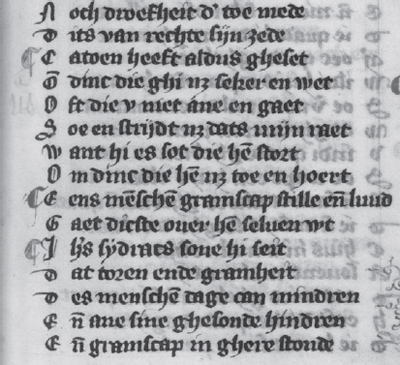 N och droefheit d' toe mede
D its van rechte sijn zede
C atoen heeft aldus gheset
G dinc die ghi nz seker en wet
O ft die v niet ane en gaet
S oe en strijdt nz dats mijn raet
W ant hi es sot die hē stort
O m dinc die hē nz toe en hoert
E ens mēschē gramscap stille eñ luud
G aet dicste ouer hē seluen wt
sydracs sone hi seit
D at toren ende gramheit
D es menschē dage can mindren
E ñ ane sine ghesonde hindren
E ñ gramscap in ghere stonde